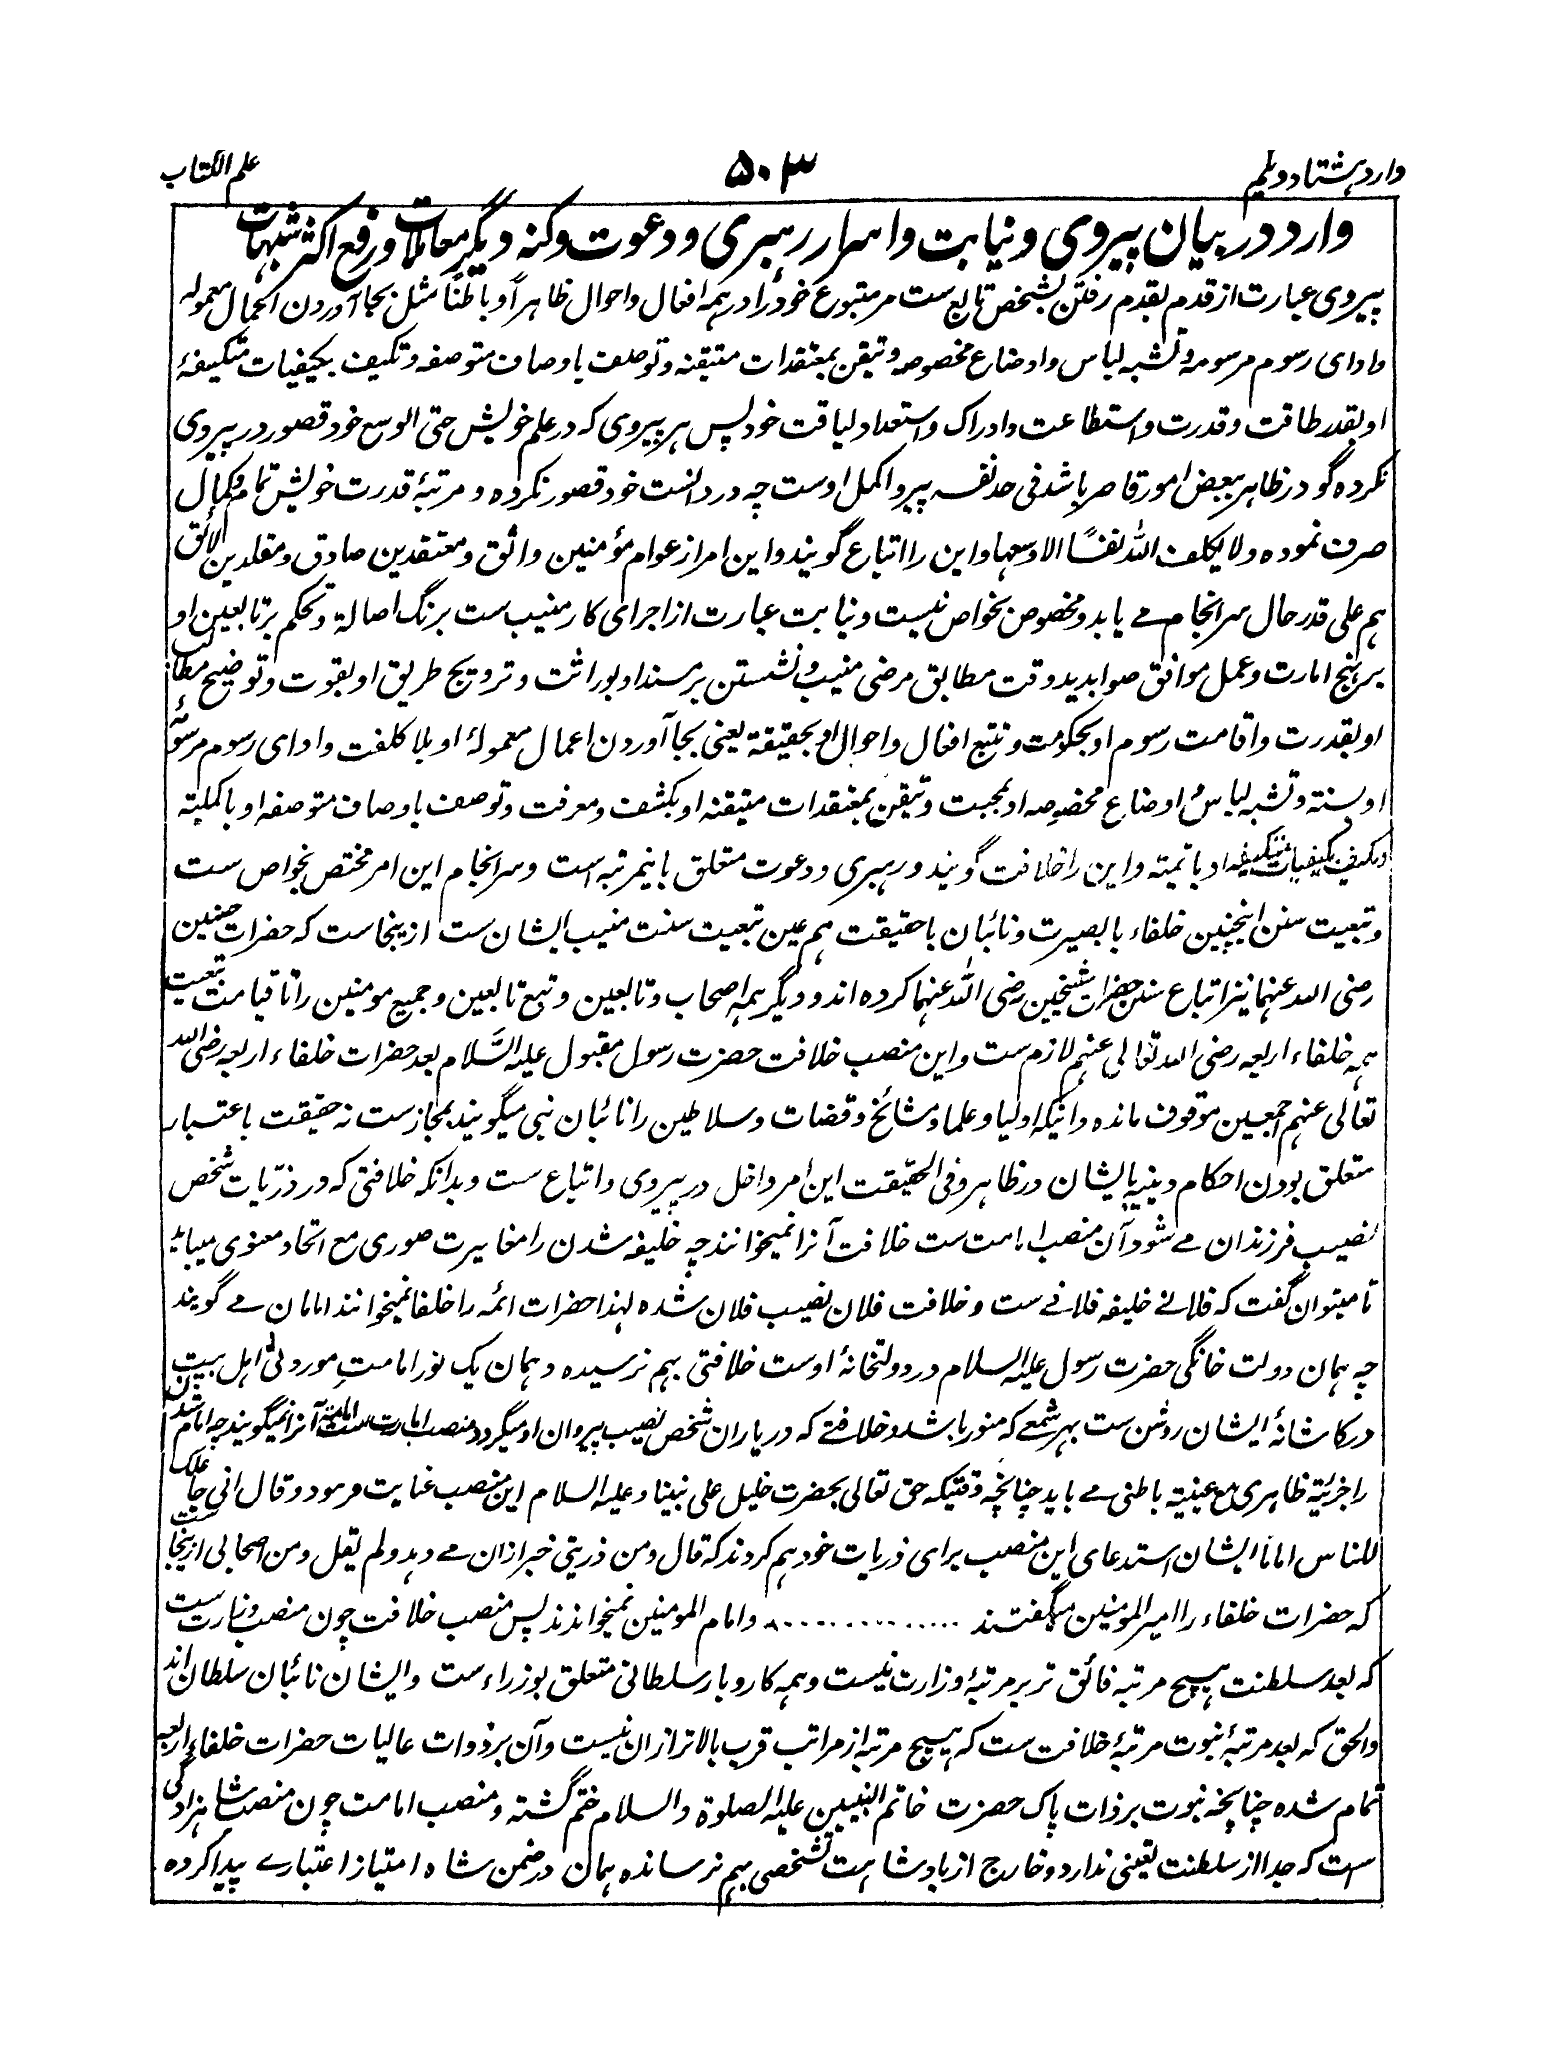 وارد هشتاد و یکم
۵۰۳
علم الکتاب
وارد در بیان پیروی و نیابت و اسرار رهبری و دعوت و کنه دیگر معاملات و رفع اکثر شبهات
پیروی عبارت از قدم بقدم رفتن بشخص تابع ست مر متبوع خود را در همه افعال و احوال ظاهراً و باطناً مثل بجا آوردن اعمال معموله
و ادای رسوم مرسومه و تشبه لباس و اوضاع مخصوصه و تیقن بمعتقدات متیقنه و توصف باوصاف متوصفه و تکیف بکیفیات متکیفهٔ
او بقدر طاقت و قدرت و استطاعت و ادراک و استعداد لیاقت خود پس هر پیروی که در علم خویش حتی الوسع خود قصور در پیروی
نکرده گو در ظاهر ببعض امور قاصر باشد فی حد نفسه پیرو اکمل اوست چه در دانست خود قصور نکرده و مرتبهٔ قدرت خویش تمام و کمال
صرف نموده و لا یکلف الله نفسًا الا وسعها و این را اتباع گویند و این امر از عوام مؤمنین واثق و معتقدین صادق و مقلدین لائق
هم علی قدر حال سرانجام مے یابد و مخصوص بخواص نیست و نیابت عبارت از اجرای کار منیب ست برنگ اصالة و تحکم بر تابعین او
بر نهج امارت و عمل موافق صوابدید وقت مطابق مرضی منیب و نشستن بر مسند او بوراثت و ترویج طریق او بقوت و توضیح مطالب
او بقدرت و اقامت رسوم او بحکومت و تتبع افعال و احوال او بحقیقة یعنی بجا آوردن اعمال معمولهٔ او بلا کلفت و ادای رسوم مرسومهٔ
او بسنته و تشبه لباس و اوضاع مخصوصه او بمحبت و تیقن بمعتقدات متیقنه او بکشف و معرفت و توصف باوصاف متوصفه او باکملیته
و تکیف بکیفیات متکیفه او باتمیته و این را خلافت گویند و رهبری و دعوت متعلق باینمرتبه است و سرانجام این امر مختص بخواص ست
و تبعیت سنن اینچنین خلفاء بابصیرت و نائبان باحقیقت هم عین تبعیت سنت منیب ایشان ست ازینجاست که حضرات حسنین
رضی الله عنهما نیز اتباع سنن حضرات شیخین رضی الله عنهما کرده اند و دیگر همه اصحاب و تابعین و تبع تابعین و جمیع مومنین را تا قیامت تبعیت
همه خلفاء اربعه رضی الله تعالی عنهم لازم ست و این منصب خلافت حضرت رسول مقبول علیه السَّلام بعد حضرات خلفاء اربعه رضی الله
تعالی عنهم اجمعین موقوف مانده و اینکه اولیا و علما و مشائخ و قضات و سلاطین را نائبان نبی میگویند بمجازست نه حقیقت باعتبار
متعلق بودن احکام دینیه بایشان در ظاهر و فی الحقیقت این امر داخل در پیروی و اتباع ست و بدانکه خلافتی که در ذرّیات شخص
نصیب فرزندان مے شود آن منصب امامت ست خلافت آنرا نمیخوانند چه خلیفه شدن را مغایرت صوری مع اتحاد معنوی میباید
تا میتوان گفت که فلانے خلیفه فلانے ست و خلافت فلان نصیب فلان شده لهذا حضرات ائمه را خلفا نمیخوانند امامان مے گویند
چه همان دولت خانگی حضرت رسول علیه السلام در دولتخانهٔ اوست خلافتی بهم نرسیده و همان یک نور امامتِ موروثی اهل بیت
در کاشانهٔ ایشان روشن ست بهر شمعے که منور باشد و خلافتے که در یاران شخص نصیب پیروان او میگردد منصب امارت ست امامت آنرا نمیگویند چه امام شدن
را جزئیة ظاهری مع عینیة باطنی مے باید چنانچه وقتیکه حق تعالی بحضرت خلیل علی نبینا و علیه السلام این منصب عنایت فرمود و قال انی جاعلک
للناس امامًا ایشان استدعای این منصب برای ذریات خود هم کردند که قال و من ذریتی خبر ازان مے دهد و لم یقل و من اصحابی ازینجاست
که حضرات خلفاء را امیر المومنین میگفتند .................. و امام المومنین نمیخواندند پس منصب خلافت چون منصب وزارت ست
که بعد سلطنت هیچ مرتبه فائق تر بر مرتبهٔ وزارت نیست و همه کاروبار سلطانی متعلق بوزراء ست و ایشان نائبان سلطان اند
و الحق که بعد مرتبهٔ نبوت مرتبهٔ خلافت ست که هیچ مرتبه از مراتب قرب بالاتر ازان نیست و آن بر ذوات عالیات حضرات خلفاء اربعه
تمام شده چنانچه نبوت بر ذات پاک حضرت خاتم النبیین علیه الصلوة والسلام ختم گشته و منصب امامت چون منصب شاهزادگی
ست که جدا از سلطنت تعینی ندارد و خارج از بادشاهت تشخصی بهم نرسانده همان در ضمن شاه امتیاز اعتبارے پیدا کرده